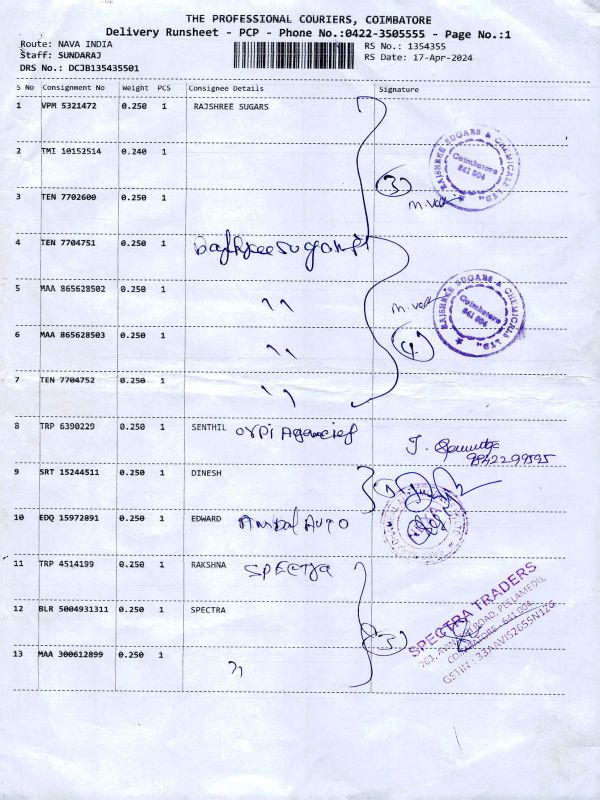 THE PROFESSIONAL COURIERS, COIMBATORE
Delivery Runsheet - PCP - Phone No.:0422-3505555 - Page No.:1
Route: NAVA INDIA
RS No.: 1354355
Staff: SUNDARAJ
RS Date: 17-Apr-2024
DRS No.: DCJB135435501
S No Consignment No Weight PCS Consignee Details Signature
1 VPM 5321472 0.250 1 RAJSHREE SUGARS
2 TMI 10152514 0.240 1
RAJSHREE SUGARS & CHEMICALS LTD.
Coimbatore
641 004
3
3 TEN 7702600 0.250 1
4 TEN 7704751 0.250 1
5 MAA 865628502 0.250 1 "
RAJSHREE SUGARS & CHEMICALS LTD.
Coimbatore
641 004
4
6 MAA 865628503 0.250 1 "
7 TEN 7704752 0.250 1 "
8 TRP 6390229 0.250 1 SENTHIL
9842299595
9 SRT 15244511 0.250 1 DINESH
10 EDQ 15972891 0.250 1 EDWARD AUTO
11 TRP 4514199 0.250 1 RAKSHNA SPECTRA
12 BLR 5004931311 0.250 1 SPECTRA
3
SPECTRA TRADERS
13 MAA 300612899 0.250 1 "